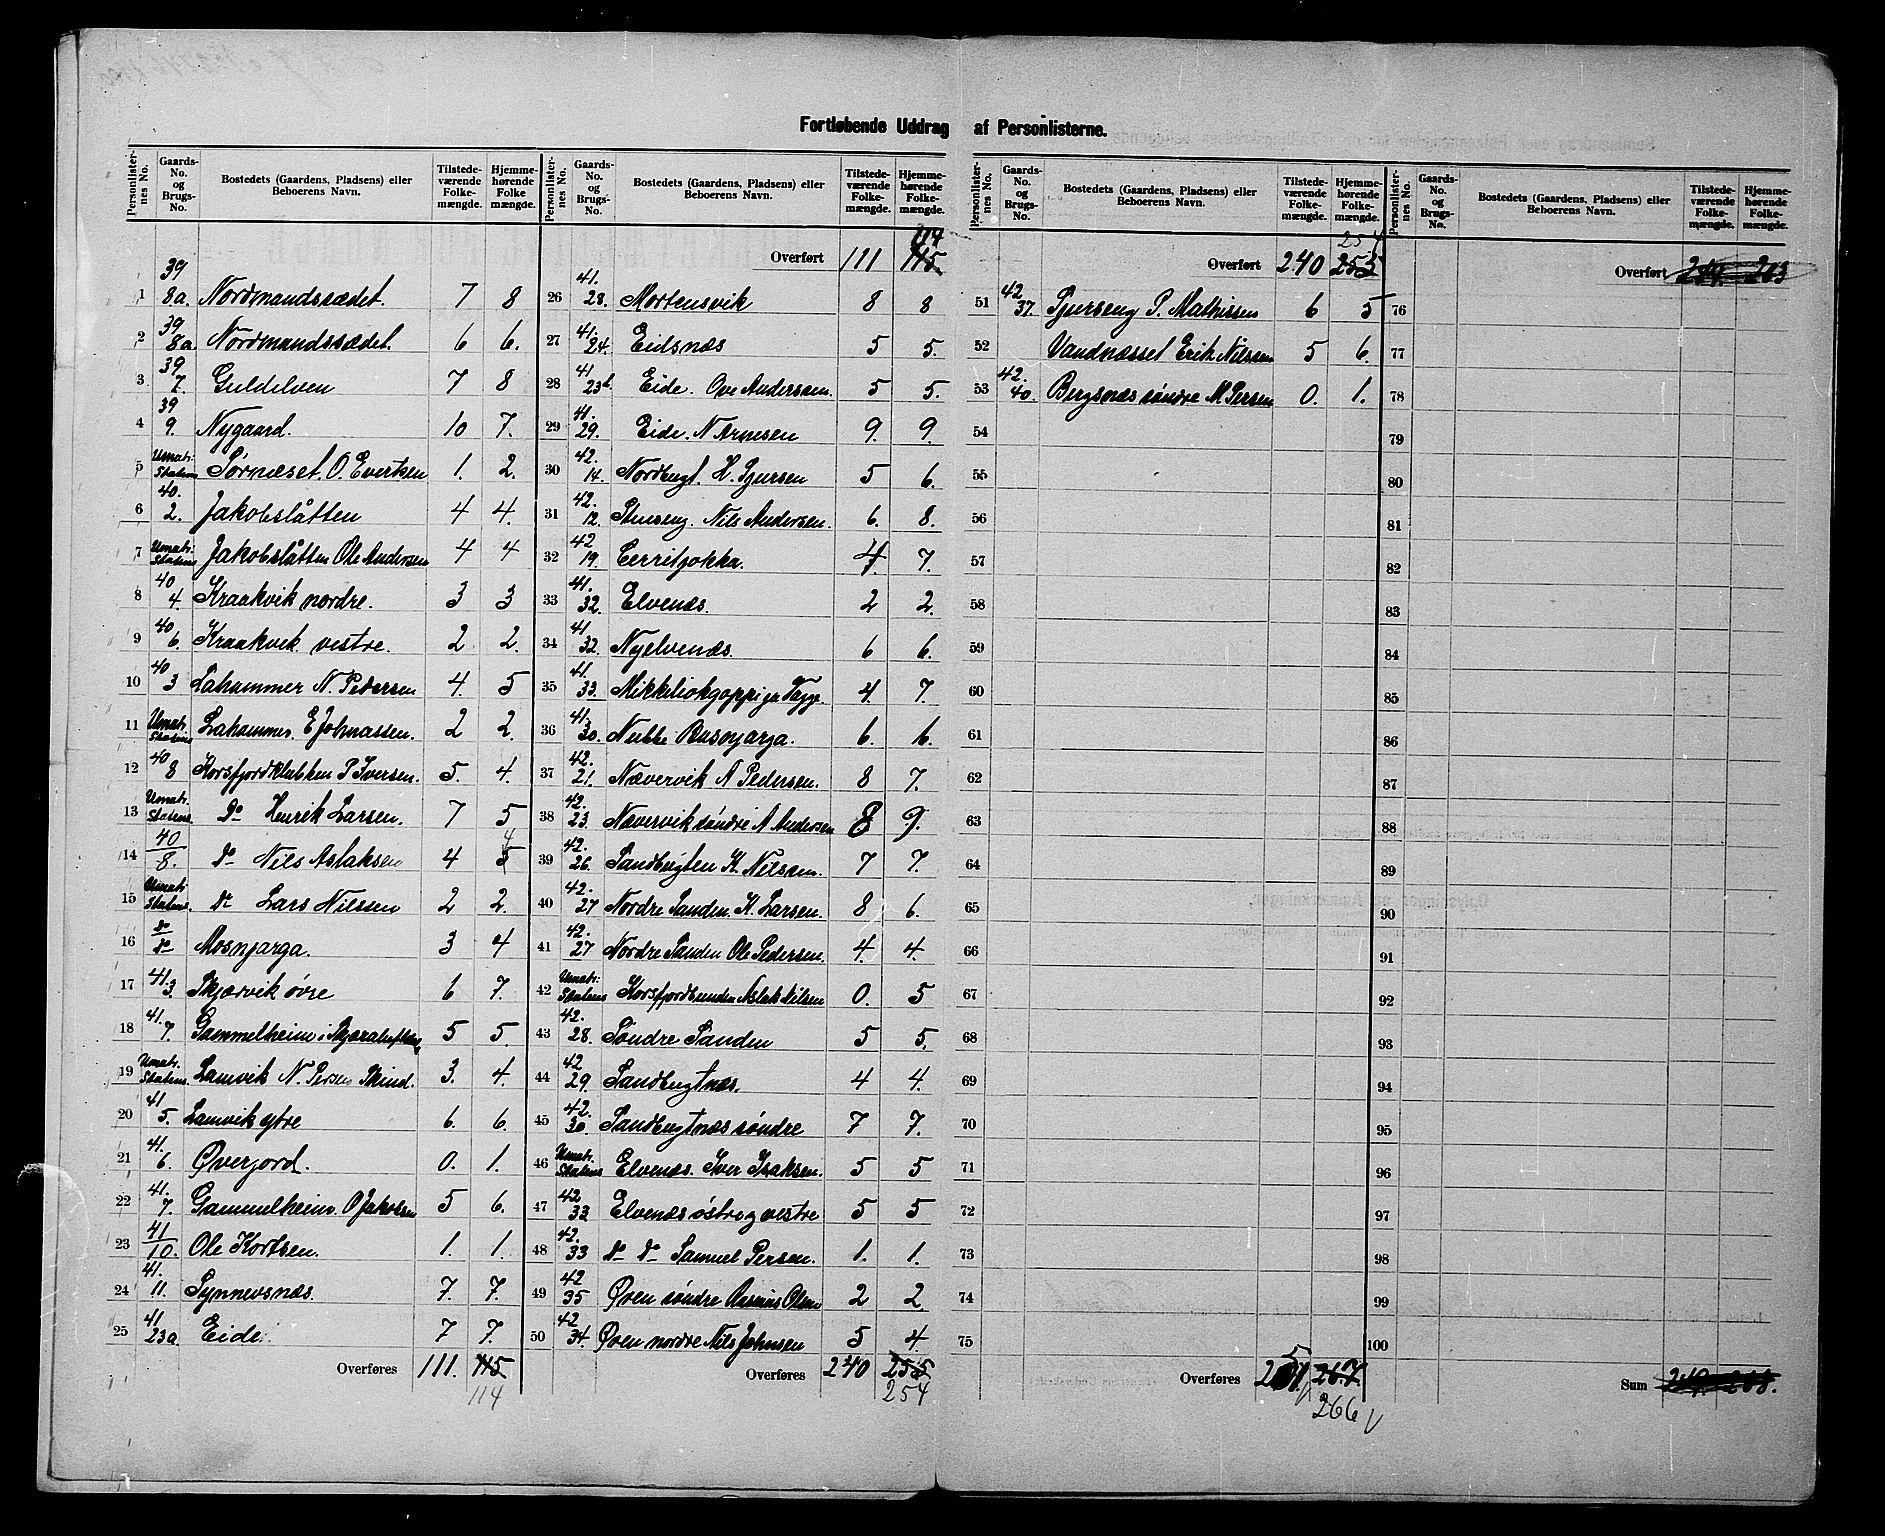 Fortløbende Uddrag af Personlisterne.
Personlisternes No. | Gaards-No. og Brugs-No. | Bostedets (Gaardens, Pladsens) eller Beboerens Navn. | Tilstedeværende Folkemængde. | Hjemmehørende Folkemængde.
1 39/8a Nordmandssædet. 7 8
2 39/8a Nordmandssædet. 6 6.
3 39/7. Guldelven 7 8
4 39/9. Nygaard. 10 7.
5 Umatr. Statens Sørnæset. O. Evertsen 1. 2.
6 40./2. Jakobslåtten 4 4.
7 Umatr. Statens Jakobslåtten Ole Andersen 4 4
8 40/4. Kraakvik nordre. 3 3
9 40/6. Kraakvik vestre. 2 2.
10 40/3 Lahammer N. Pedersen 4. 5
11 Umatr. Statens Lahammer. E Johnassen. 2 2.
12 40/8 Korsfjordklubben P Iversen. 5. 4.
13 Umatr. Statens. Do Henrik Larsen. 7 5
14 40/8. do Nils Aslaksen 4 5 4
15 Umatr. Statens. do Lars Nilssen 2 2.
16 do do Mosnjarga. 3 4
17 41/3. Skjærvik øvre 6 7.
18 41./7. Gammelheim i 5 5.
19 Umatr. Statens Lamvik N. Persen Skind. 3. 4.
20 41/5. Lamvik ytre 6. 6.
21 41./6. Øverjord. 0. 1.
22 41./7. Gammelheim. O Jakobsen 5 6.
23 41/10. Ole Kortsen. 1. 1.
24 41./11. Synnevsnæs. 7. 7.
25 41/23a Eide. 7 7.
Overføres 111. 115 114
Overført 111 115 114
26 41./28. Mortensvik 8 8
27 41./24. Eidsnæs 5 5.
28 41/23b. Eide. Ove Anderssen. 5 5.
29 41./29. Eide. N Arnesen 9. 9.
30 42./14. Nordbugt. H. Sjursen 5 6.
31 42./12. Stuseng. Nils Andersen. 6. 8.
32 42/19. Cerritjokka. 4 7.
33 41./32. Elvenæs. 2 2.
34 41/32. Nyelvenæs. 6 6.
35 41./33. 4. 7.
36 41./30. Nubbe Basnjarga. 6. 6.
37 42./21. Nævervik A Pedersen. 8 7.
38 42./23. Nævervik søndre A Andersen 8 9.
39 42./26. Sandbugten K. Nilssen. 7 7.
40 42./27 Nordre Sanden. K. Larsen. 8 6.
41 42./27 Nordre Sanden Ole Pedersen. 4 4.
42 Umatr. Statens Korsfjordbunden Aslak Nilsen 0. 5
43 42./28. Søndre Sanden 5 5.
44 42/29. Sandbugtnæs. 4 4.
45 42./30. Sandbugtnæs søndre 7 7.
46 Umatr. Statens Elvenæs. Iver Isaksen. 5 5
47 42/33 Elvenæs østre og vestre 5 5
48 42./33 do do Samuel Persen. 1. 1.
49 42/35 Øren søndre Rasmus Olsen 2 2.
50 42/34. Øren nordre Nils Johnsen 5 4
Overføres 240 255 254
Overført 240 253 254
51 42/37. Sjurseng P. Mathissen 6 5
52 Vandnæsset Erik Nilssen 5 6.
53 42./40. Bergsnæs søndre M. Persen 0. 1.
54
55
56
57
58
59
60
61
62
63
64
65
66
67
68
69
70
71
72
73
74
75
Overføres 251 267. 266
Overført
76
77
78
79
80
81
82
83
84
85
86
87
88
89
90
91
92
93
94
95
96
97
98
99
100
Sum